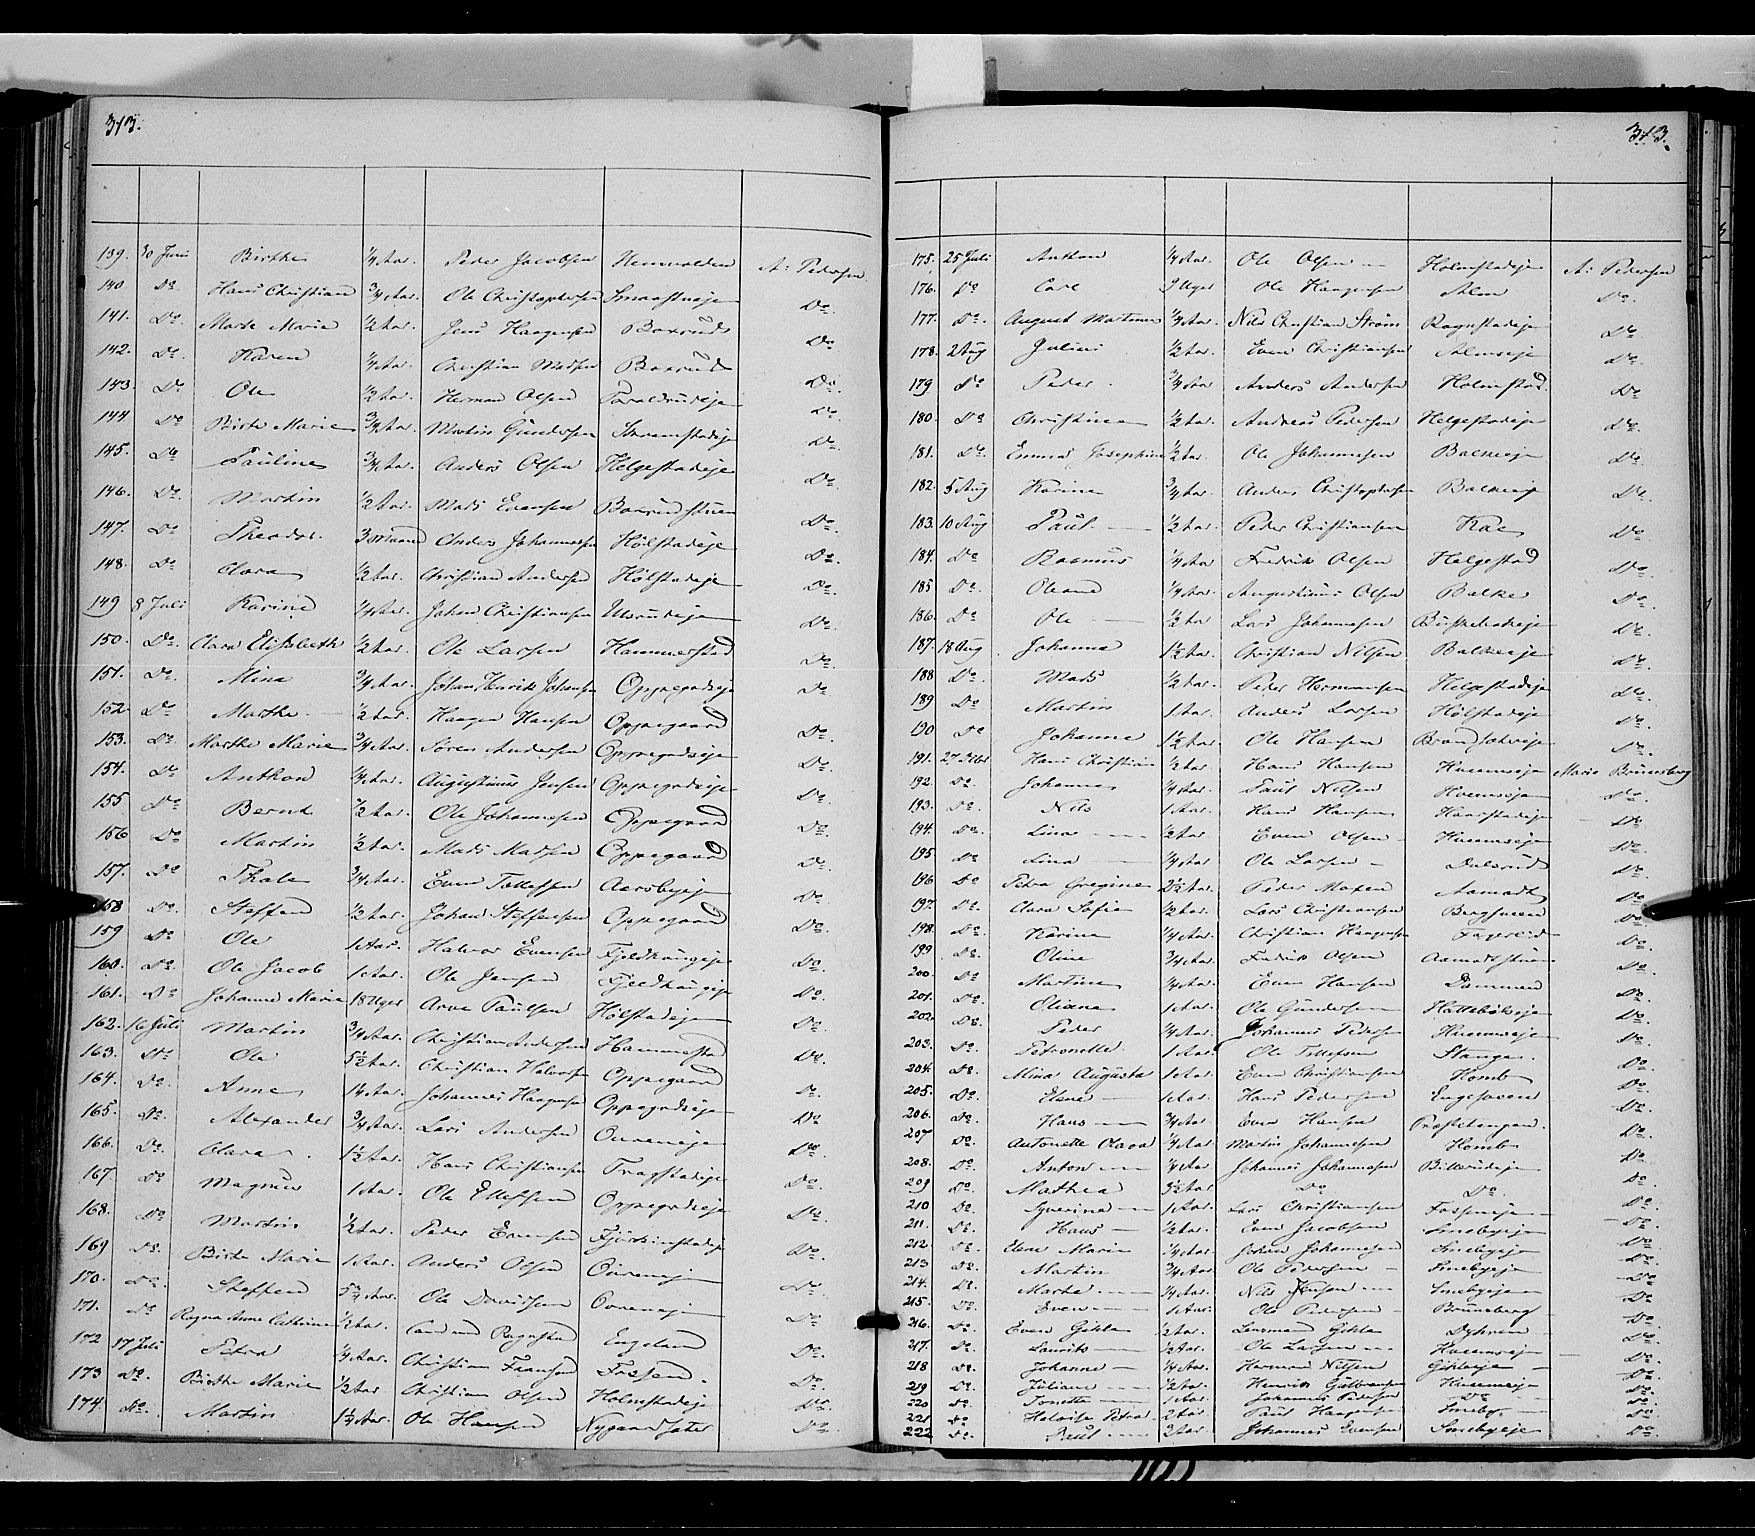 313.
139. 30 Juni Birthe 1/4 Aar. Peder Jacobsen A: Pedersen
140 Do. Hans Christian 3/4 Aar. Ole Christophersen Do.
141. Do. Marte Marie 1/2 Aar. Jens Haagensen Boxrud Do.
142. Do. Karen 1/4 Aar. Christian Madsen Boxrud Do.
143. Do. Ole 1/2 Aar. Herman Olsen Do.
144. Do Birte Marie 3/4 Aar. Martin Gundersen Do.
145. Do Pauline 3/4 Aar. Anders Olsen Helgestadeje Do.
146. Do. Martin 1/2 Aar. Mads Evensen Do.
147. Do Theodor. 3 Maaned Anders Johannesen Hölstadeje Do.
148. Do Clara 1/2 Aar. Christian Andersen Hölstadeje Do.
149 8 Juli Karine 1/4 Aar. Johan Christiansen Do.
150. Do. Clara Elisabeth 1/2 Aar. Ole Larsen Hammerstad Do.
151. Do. Mina 3/4 Aar. Johan Henrik Johansen Oppegrdseje Do
152. Do. Marthe 1/2 Aar. Haagen Hansen Oppegaard Do.
153. Do. Marthe Marie 3/4 Aar. Søren Andersen Oppegrdseje Do.
154. Do Anthon 1/4 Aar. Augustinus Jensen Oppegrdseje Do.
155 Do Bernt 1/2 Aar. Ole Johannesen Oppegaard Do.
156 Do Martin 1/2 Aar. Mads Madsen Oppegaard Do.
157. Do Thale 3/4 Aar. Even Tollefsen Do.
158 Do. Steffen 1/2 Aar. Johan Steffensen Oppegaard Do.
159 Do. Ole 1 Aar. Halvor Evensen Do
160. Do. Ole Jacob 1 Aar. Ole Jensen Do.
161. Do Johanne Marie 18 Uger Arve Paulsen Hölstadeje Do.
162. 16 Juli Martin 3/4 Aar. Christian Andersen Hammerstad Do.
163. Do Ole 5 1/2 Aar. Christian Halvorsen Oppegaard Do.
164. Do. Anne 1/4 Aar. Johannes Haagensen Oppegrdseje Do
165. Do. Alexander 3/4 Aar. Lars Andersen Do.
166. Do. Clara. 1 1/2 Aar. Hans Christiansen Do.
167. Do Magnus 1 Aar. Ole Ellefsen Oppegrdseje Do.
168. Do Martin 1/2 Aar. Peder Evensen Do.
169 Do. Birte Marie 1 Aar. Anders Olsen Do.
170. Do. Steffen 5 3/4 Aar. Ole Davidsen Do.
171. Do Ragna Anne Cathrine 1/2 Aar. Engelund Do.
172 17 Juli Petra 1/4 Aar. Christian Fransen Fossen. Do.
173 Do. Birthe Marie 1/2 Aar Christian Olsen Holmstadeje Do.
174 Do. Martin 1 1/4 Aar. Ole Hansen Do.
313.
175. 25 Juli Anton 1/4 Aar. Ole Olsen Holmstadeje A: Pedersen
176. Do Carl 9 Uger Ole Haagensen Alm Do.
177. Do. August Martinus 1/4 Aar. Nils Christian Strøm Rognstadeje Do
178. 2 Aug Julius 1/2 Aar. Even Christiansen Almseje Do.
179 Do Peder. 3/4 Aar Anders Andersen Holmstad. Do
180. Do Christine 1/2 Aar. Andreas Pedersen Helgestadeje Do.
181. Do. Emma Josephine 1/2 Aar. Ole Johannesen Balkeeje Do.
182. 5 Aug Karine 3/4 Aar. Anders Christophersen Balkeeje Do.
183. 10 Aug Paul 1/2 Aar. Peder Christiansen Do.
184. Do Rasmus 1/4 Aar Fredrik Olsen Helgestad Do.
185 Do. Oleane 1/4 Aar. Augustinus Olsen Balke Do.
186. Do Ole 1/2 Aar Lars Johannesen Do.
187. 18 Aug. Johanna 1 1/2 Aar. Christian Nilsen Balkeeje Do.
188 Do. Mads 1/2 Aar. Peder Hermansen Helgestadeje Do.
189 Do. Martin 1 Aar. Anders Larsen Hölstadeje Do.
190 Do Johanne 1 1/2 Aar. Ole Hansen Do.
191. Hans Christian 1/2 Aar. Hans Hansen Huemseje Marie Brunsberg
192. Do. Johannes 1/4 Aar. Paul Nilsen Huemseje Do.
193. Do. Nils 1 Aar. Hans Hansen Do
194. Do. Lina 1/2 Aar Even Olsen Huemseje Do.
195 Do Lina 1/4 Aar Ole Larsen Do
196 Do Petra Gregine 2 1/2 Aar. Peder Moxen Aamodt Do
197. Do. Clara Sofie 1/2 Aar. Lars Christiansen Bergsveen Do
198. Do. Karine 1/4 Aar. Christian Haagensen Do.
199. Do. Oline 3/4 Aar. Fredrik Olsen Aamodtstuen Do.
200. Do Martine 1/4 Aar. Even Hansen Dammen Do.
201. Do. Oliane 1 Aar. Ole Gundersen Do.
202. Do. Peder 1/4 Aar. Johannes Pedersen Huemseje Do
203. Do. Petronelle 1 Aar. Ole Tollefsen Stange. Do.
204. Do. Mina Augusta 1 Aar. Even Christiansen Homb Do.
205. Do. Elene 1 Aar. Hans Pedersen Do.
206. Do. Hans 3/4 Aar. Even Hansen Præstetangen. Do.
207 Do. Antonette Olava 1/4 Aar. Martin Johannesen Homb Do.
208. Do. Anton 1/4 Aar Johannes Johannesen Billerudeje Do.
209 Do. Mathea 3 1/2 Aar Do Do. Do.
210 Do. Syverine 1 Aar. Lars Christiansen Fosseneje Do.
211. Do. Hans 1/2 Aar. Even Jacobsen Smebyeje Do.
212. Do. Elene Marie 1/4 Aar. Johan Johannesen Smebyeje Do.
213 Do. Martin 3/4 Aar. Ole Pedersen Smebyeje Do.
214. Do. Marte 1/4 Aar. Nils Jensen Smebyeje Do
215. Do. Even 1 Aar. Ole Pedersen Brunsberg Do.
216. Do. Even Gihle 1/2 Aar. Lensmand Gihle Dyhren Do.
217. Do Laurits 1/2 Aar. Ole Larsen Huemseje Do.
218 Do. Johanne 1/4 Aar. Herman Nilsen Gihleeje Do.
219 Do. Juliane 1/2 Aar. Henrik Gulbransen Huemseje Do.
220 Do. Tonette 1 Aar. Johannes Pedersen Do. Do.
221 Do Petra 2 Aar. Paul Haagensen Smeby. Do.
222 Do. Paul 2 Aar. Johannes Evensen Smebyeje Do